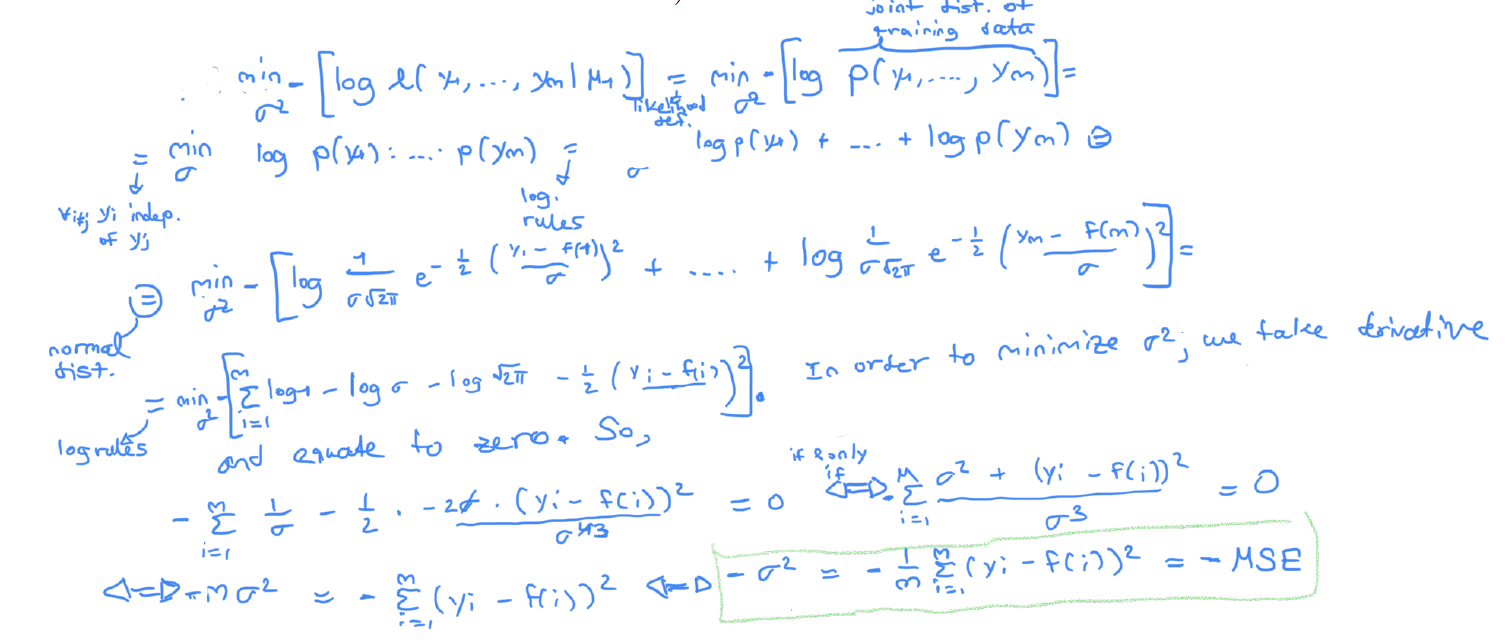 joint dist. of
training data
min σ² - [log l(y₁, ..., yₘ | M₁)] = min σ² - [log p(y₁, ...., yₘ)] =
likelihood
def.
= min σ log p(y₁) · .... · p(yₘ) = σ log p(y₁) + ... + log p(yₘ) =
∀i≠j yi indep.
of yj
log.
rules
= min σ² - [log 1/(σ√2π) e^(-1/2 ((y₁ - f(1))/σ)²) + ..... + log 1/(σ√2π) e^(-1/2 ((yₘ - f(m))/σ)²)] =
normal
dist.
= min σ² - [Σ_{i=1}^{m} log1 - log σ - log √2π - 1/2 (yi - f(i))²]. In order to minimize σ², we take derivative
log rules
and equate to zero. So,
if & only
if
- Σ_{i=1}^{m} 1/σ - 1/2 · -2σ · (yi - f(i))²/σ⁴3 = 0 ⇔ - Σ_{i=1}^{m} (σ² + (yi - f(i))²)/σ³ = 0
⇔ - m σ² = - Σ_{i=1}^{m} (yi - f(i))² ⇔ - σ² = - 1/m Σ_{i=1}^{m} (yi - f(i))² = - MSE